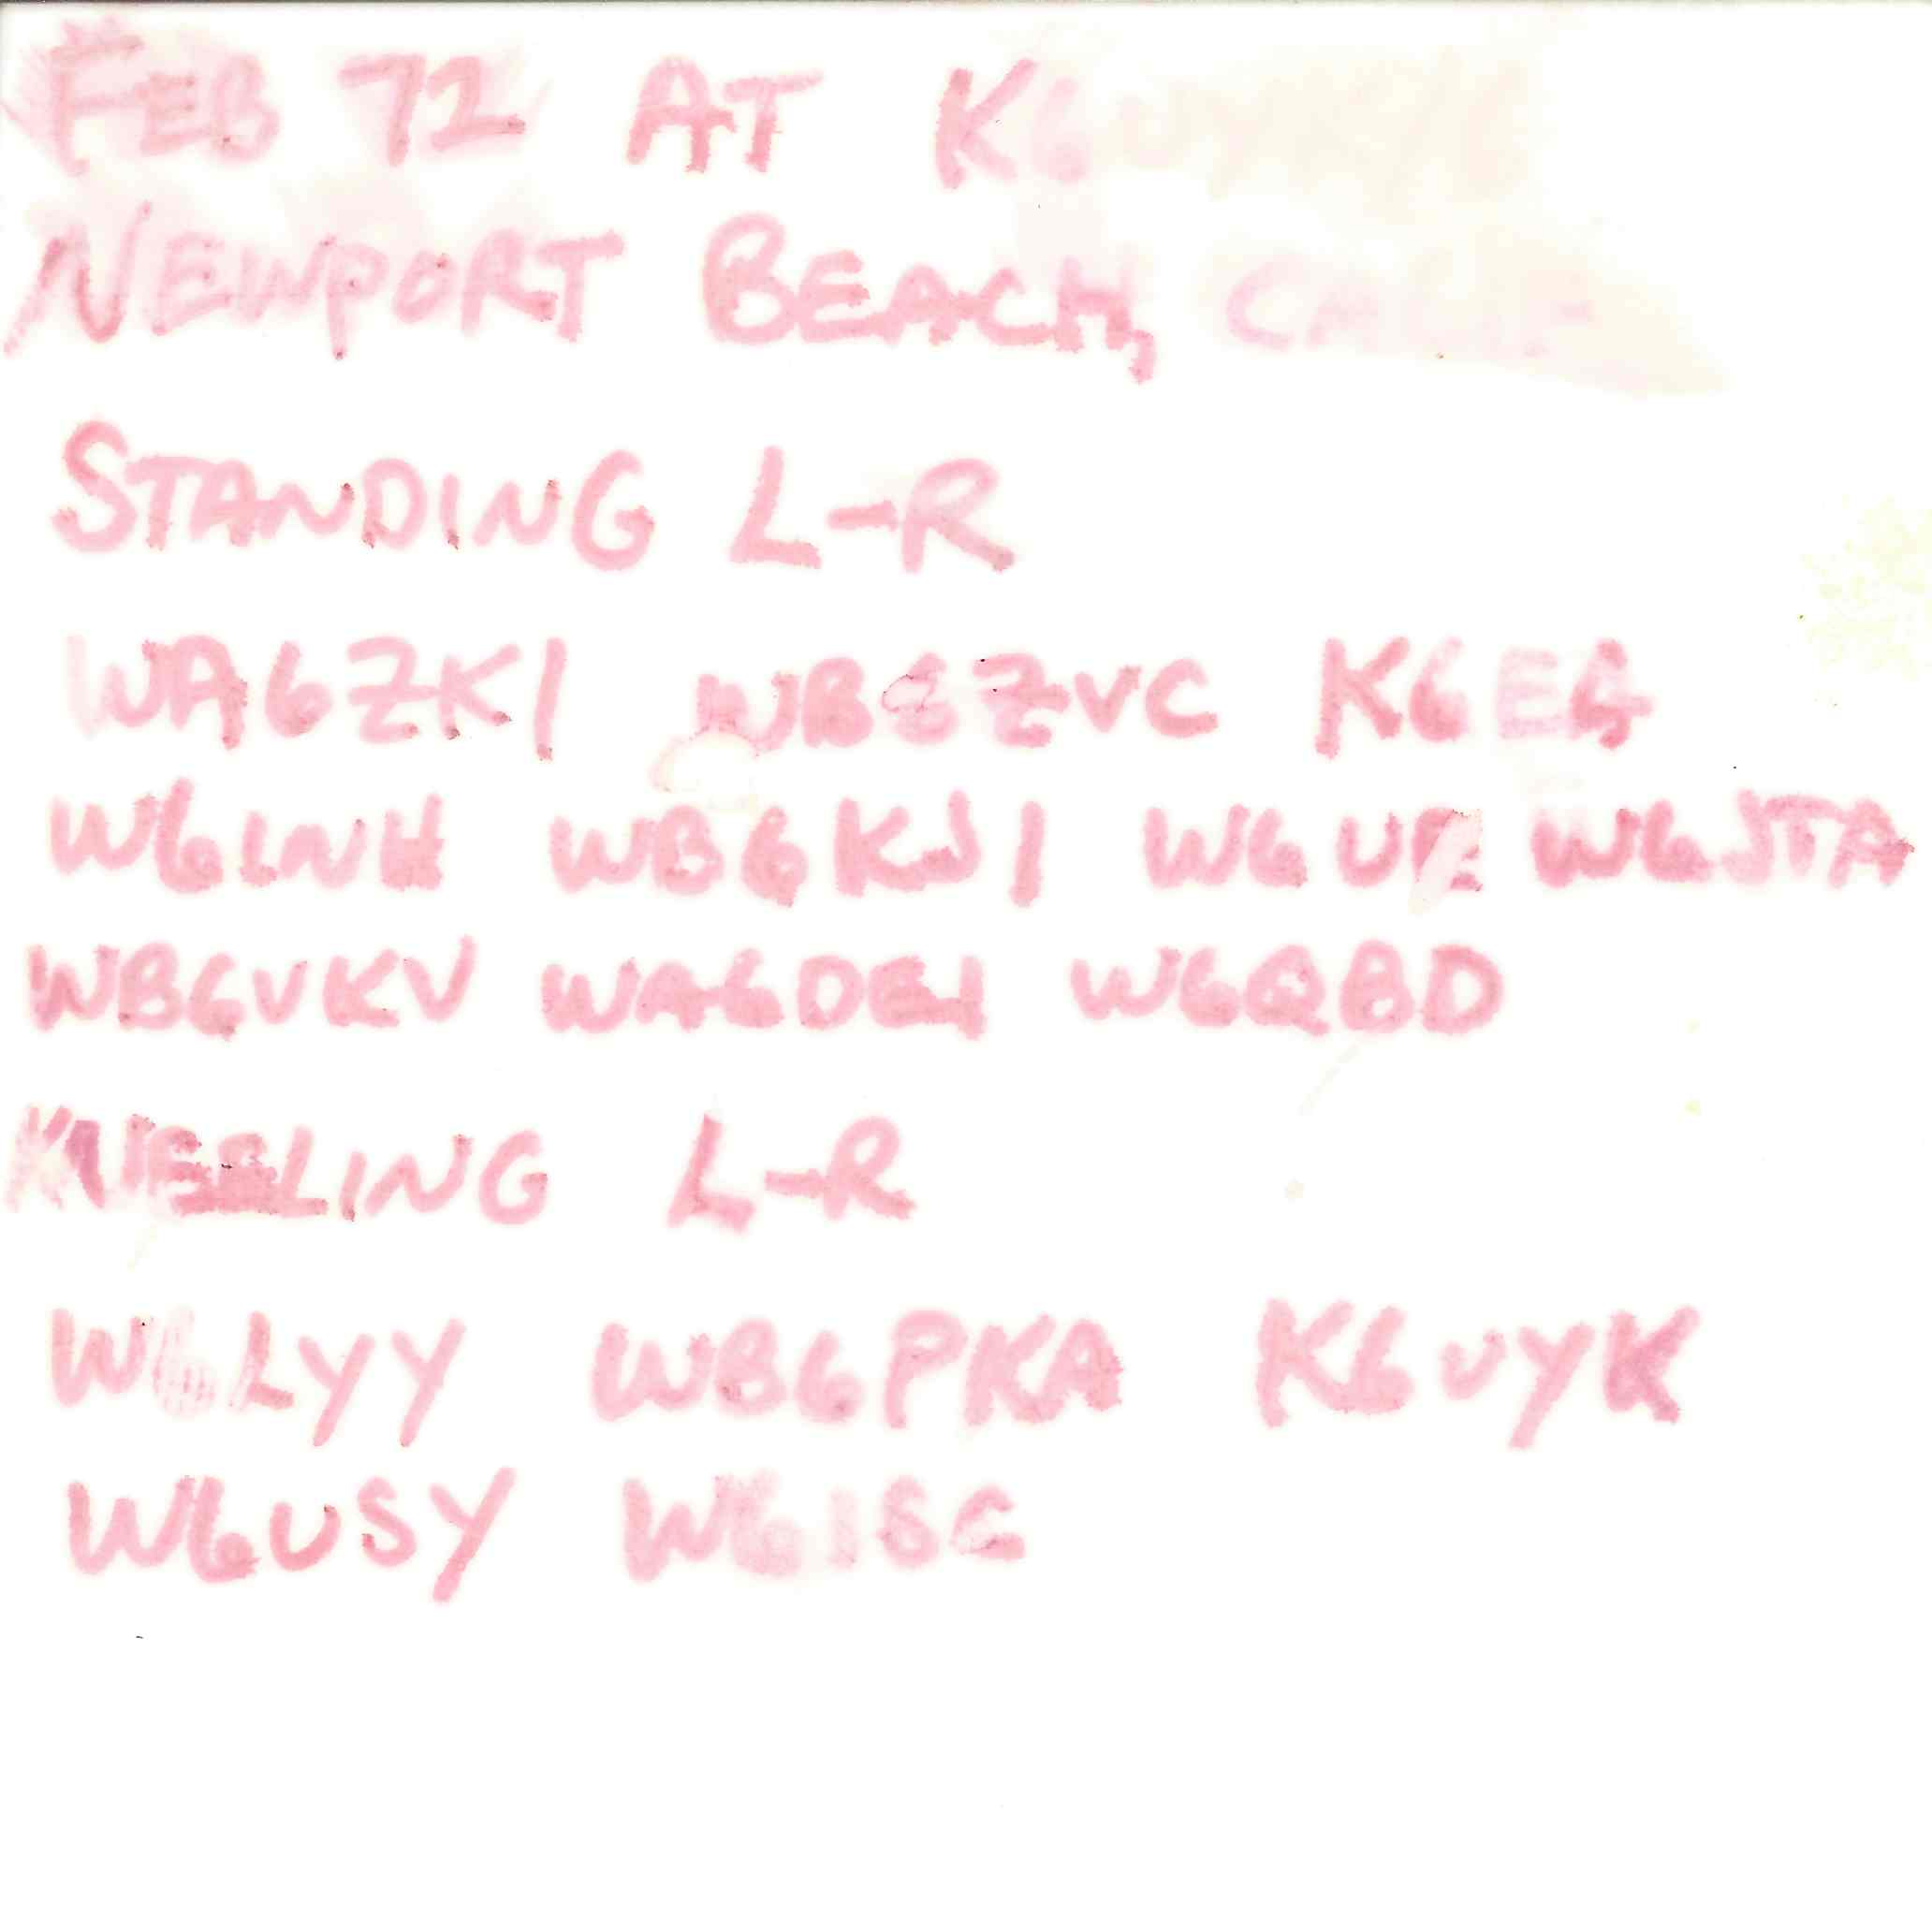 FEB 72 AT K6UYK
NEWPORT BEACH, CALIF
STANDING L-R
WA6ZKI WB6ZVC
W6INH WB6KJI W6JTA
WB6VKV WA6DEI W6QBD
KNEELING L-R
W6LYY WB6PKA K6UYK
W6USY W6ISC